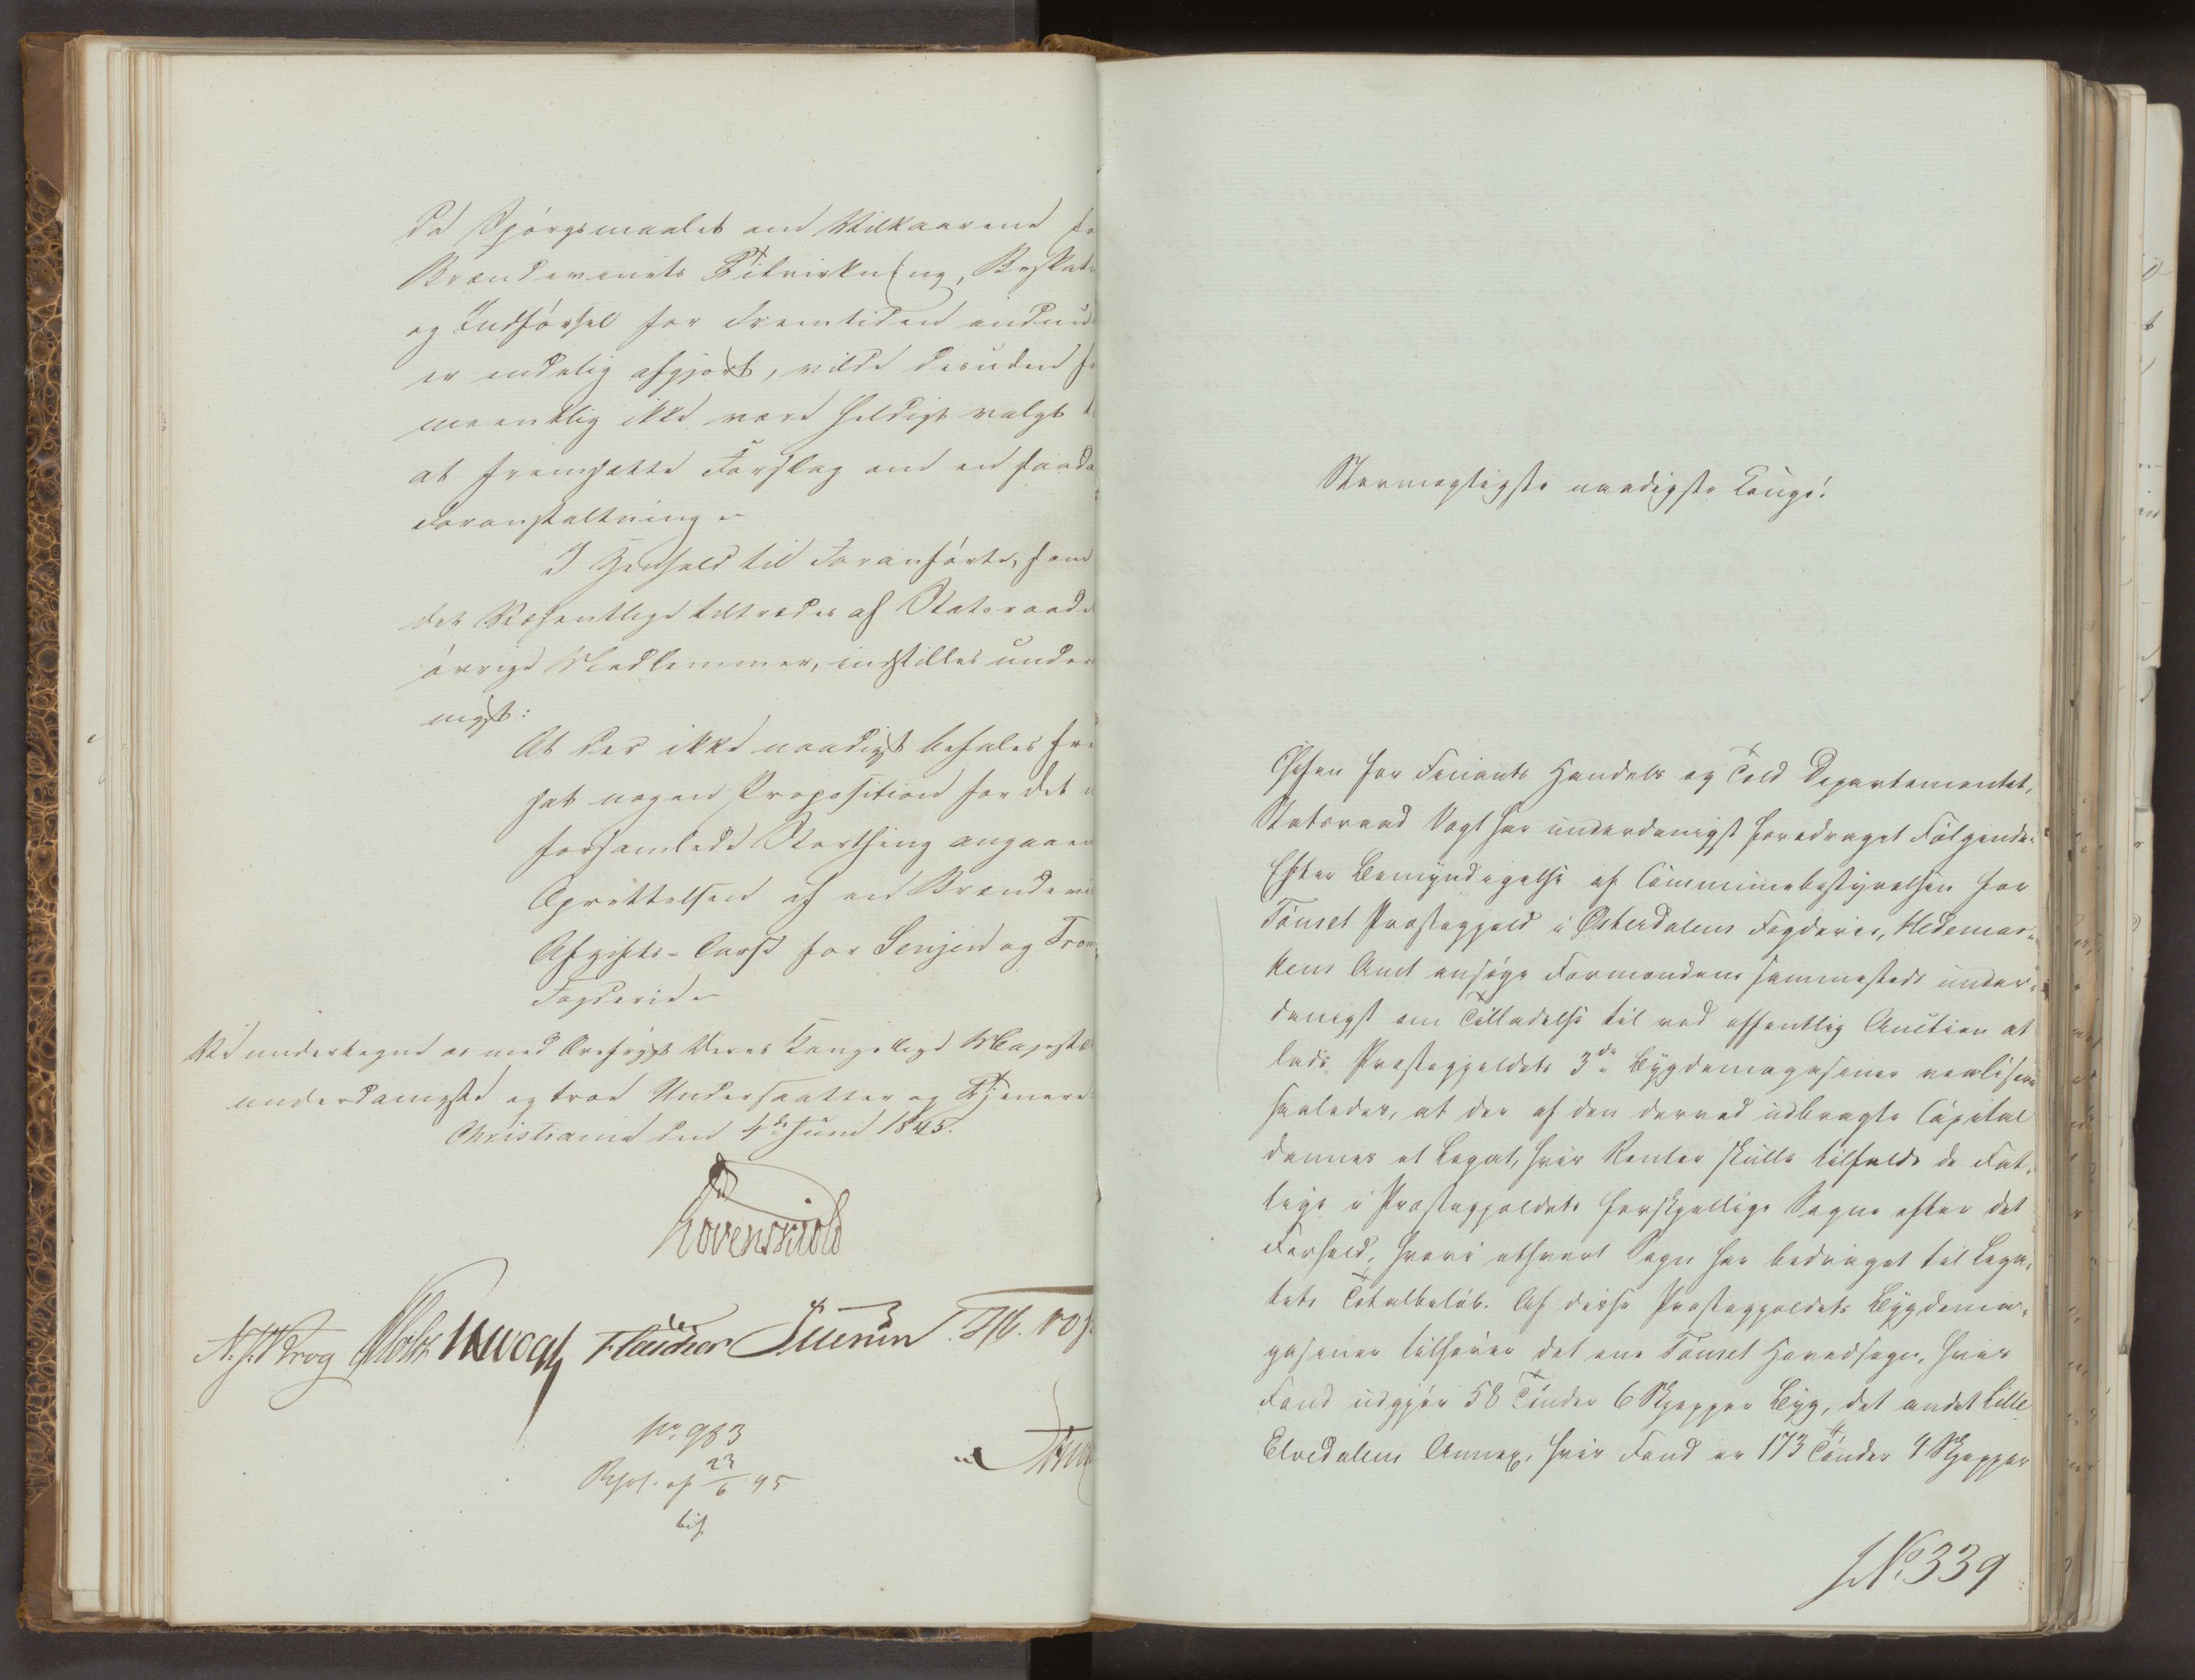 da Spörgsmaalet om Vilkaarene fo
Brændeviinets Tilvirkning, Beskatn
og Indførsel for Fremtiden endnu
er endelig afgjort, vilde desuden fo
meentlig ikke være heldigt valgt t
at fremsætte Forslag om en saada
Foranstaltning.
I Henhold til Foranførte, som
det Væsentlige tiltrædes af Statsraade
övrige Medlemmer, indstilles under
nigst:
At der ikke naadigst befales fre
sat nogen Proposition for det n
forsamlede Storthing angaaen
Oprettelsen af en Brændevi
Afgifts-Casse for Senjen og Trom
Fogderie.
Vi undertegne os med Ærefrygt Deres Kongelige Majestæ
underdanigste og troe Undersaatter og Tjenere.
Christiania den 4de Juni 1845.
Lövenskiold
N. J. Krog Holst JHVogt Fleischer Sürenn
No 983
Resol. af 23/6 45
Stormægtigste naadigste Konge!
Chefen for Finants Handels og Told Departementet,
Statsraad Vogt har underdanigst foredraget Følgende:
Efter Bemyndigelse af Communebestyrelsen for
Tönset Præstegjeld i Østerdalens Fogderie, Hedemar-
kens Amt ansøge Formændene sammesteds under-
danigst om Tilladelse til ved offentlig Auction at
lade Præstegjeldets 3de Bygdemagasiner realisere
saaledes, at der af den derved udbragte Capital
dannes et Legat, hvis Renter skulle tilfalde de Fat-
tige i Præstegjeldets forskjellige Sogne efter det
Forhold, hvori ethvert Sogn har bedraget til Lega-
tets Totalbeløb. Af disse Præstegjeldets Bygdema-
gasiner tilhører det ene Tönset Hovedsogn, hvis
Fond udgjør 58 Tönder 6 Skjepper Byg, det andet Lille
Elvedalens Annex, hvis Fond er 173 Tönder 4 Skjepper
No 339